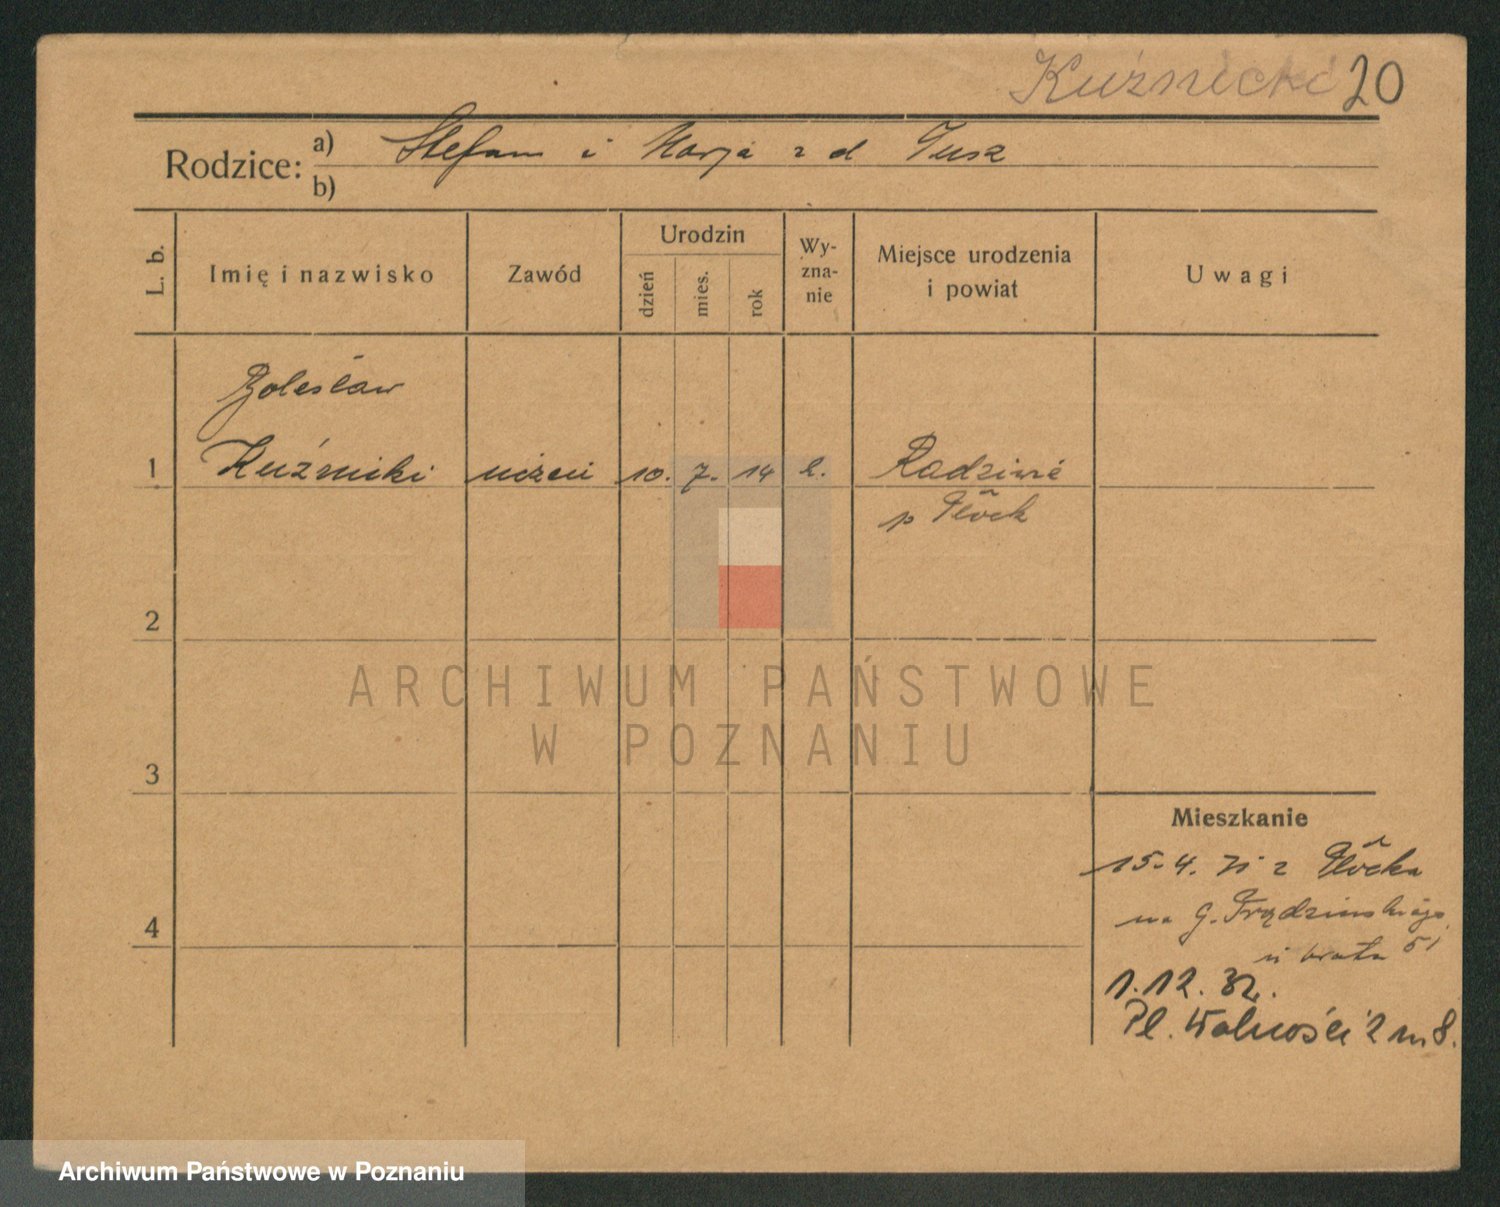 Kuźnicki 20
Rodzice: a) Stefan i Marja z d Tusz
b)
L. b.
Imię i nazwisko
Zawód
Urodzin
dzień
mies.
rok
Wy-
zna-
nie
Miejsce urodzenia
i powiat
Uwagi
Bolesław
1 Kuźnicki uczeń 10. 7. 14 k.
p Płock
2
ARCHIWUM PAŃSTWOWE
W POZNANIU
3
Mieszkanie
15.4. 31 z Płocka
na G.
4
u brata 51
1.12.32.
Pl. Wolności 2 m 8.
Archiwum Państwowe w Poznaniu